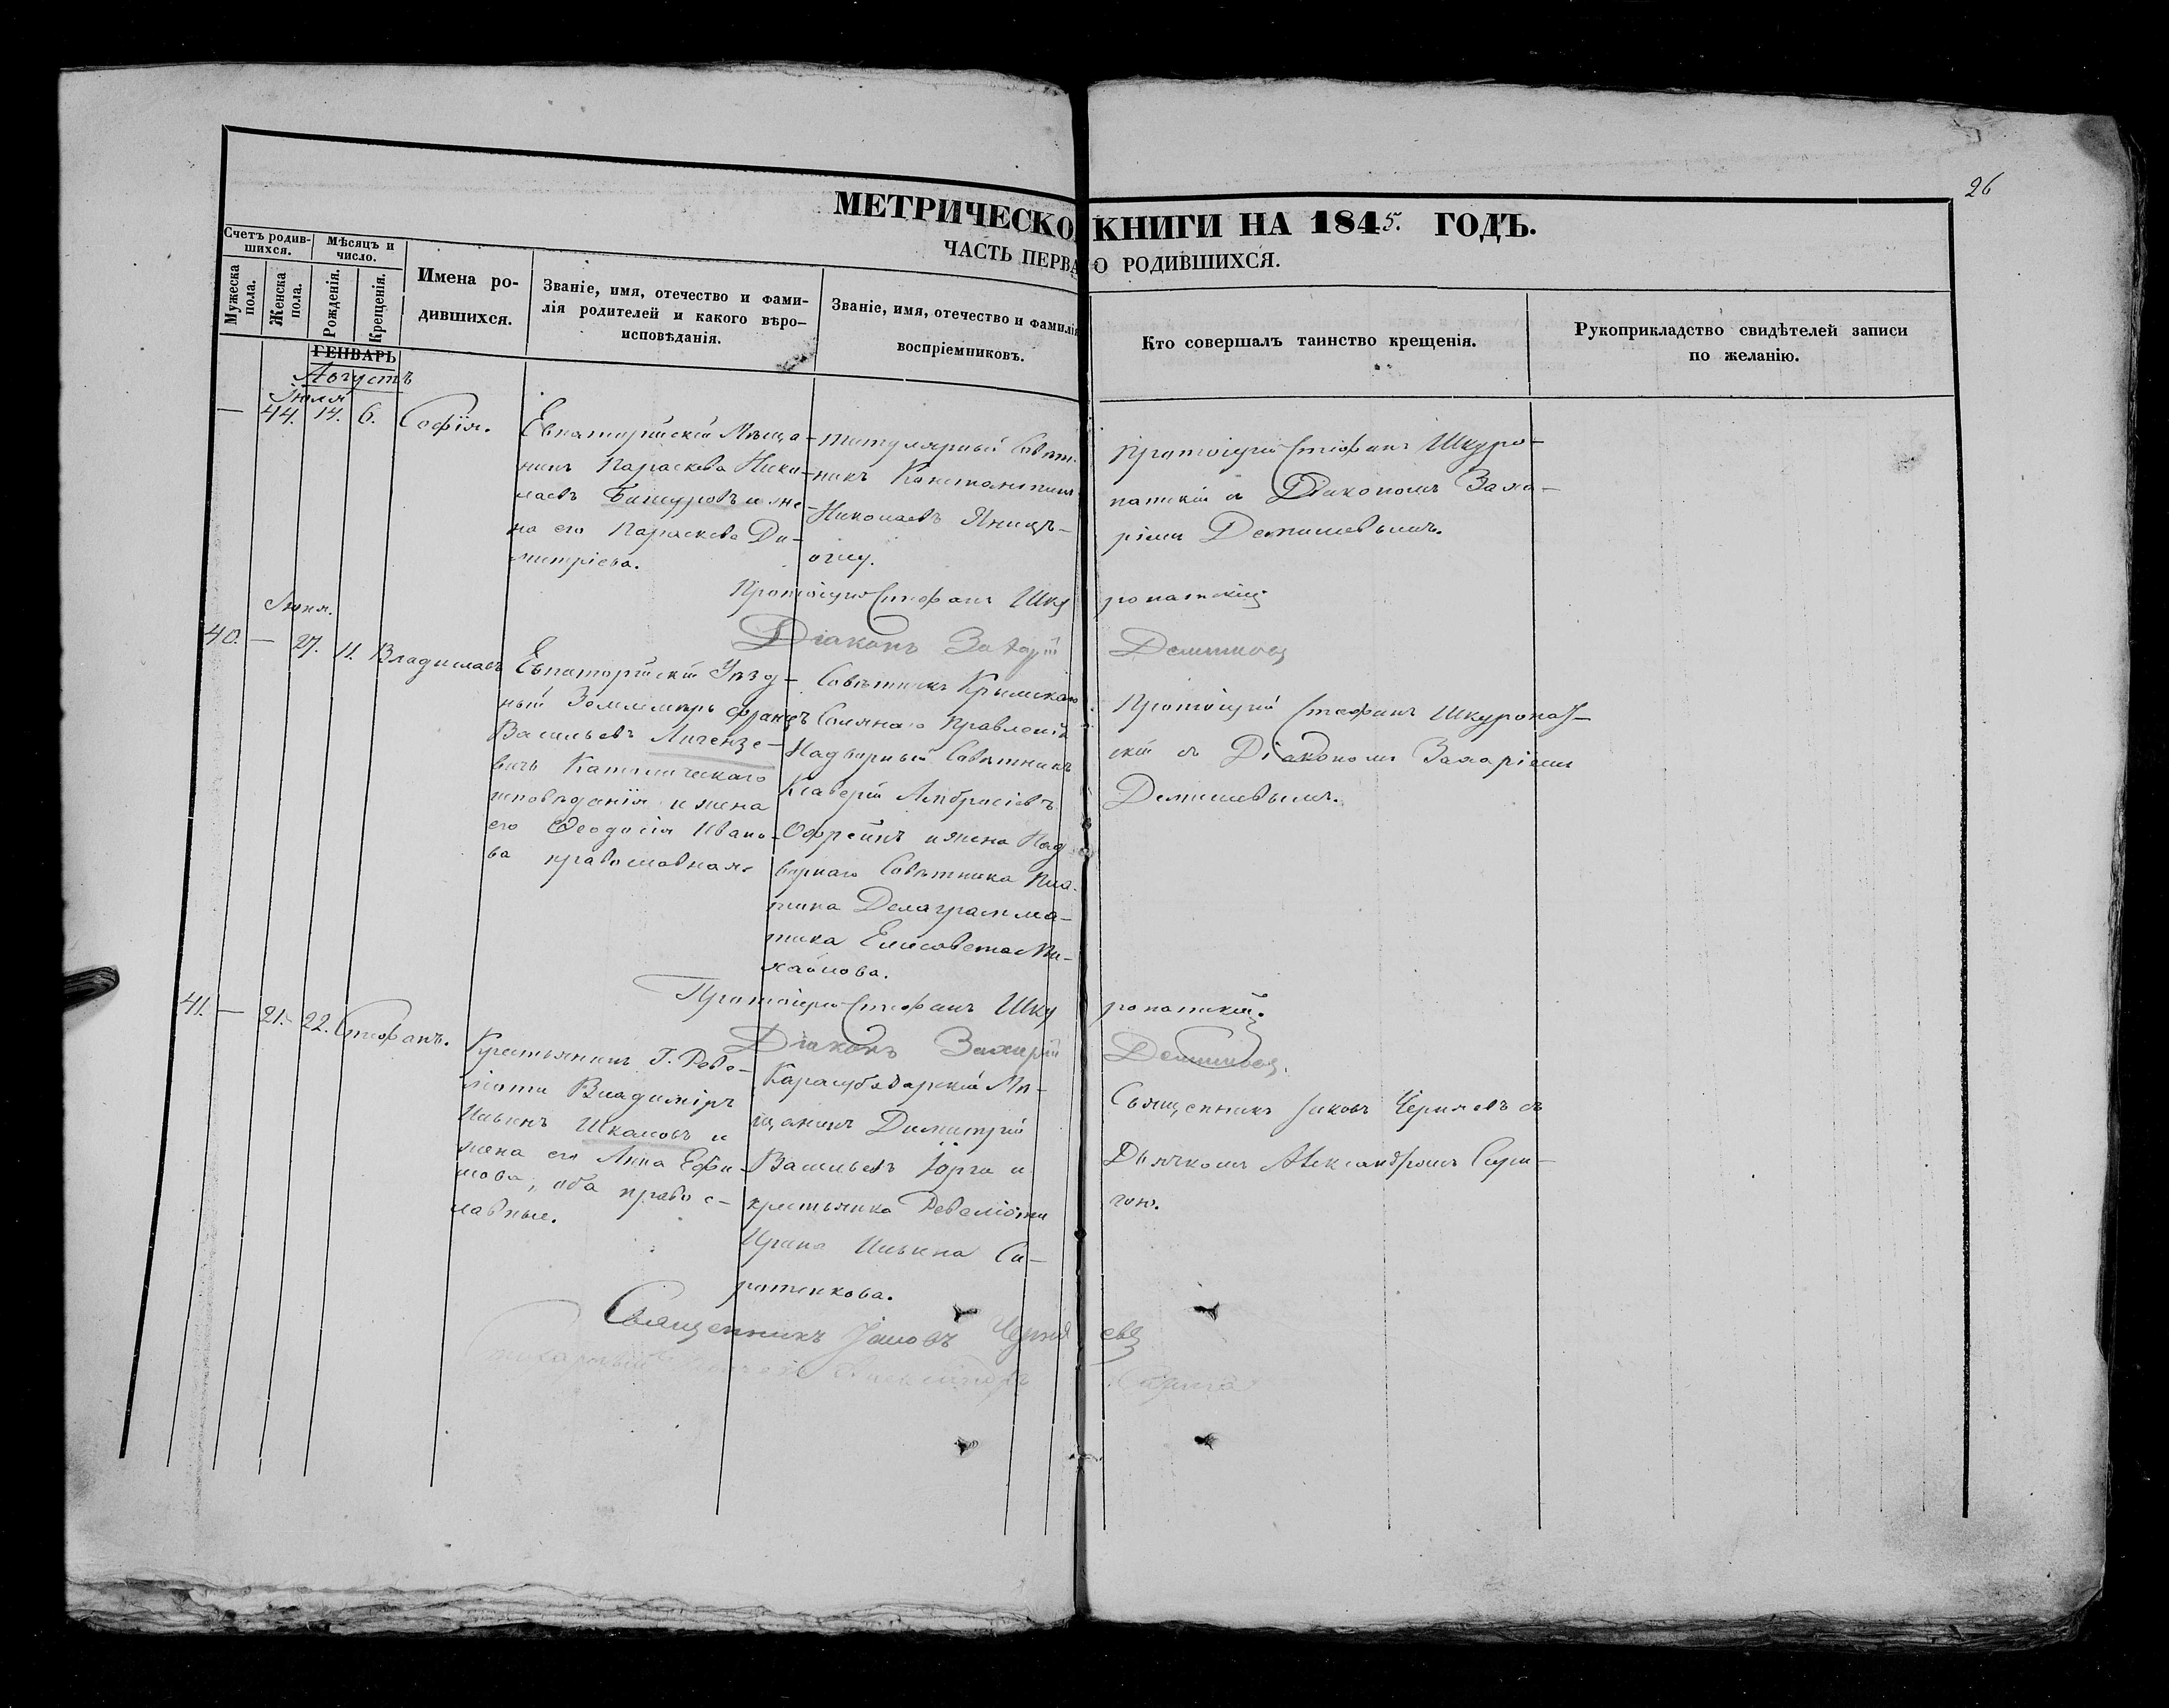 26
МЕТРИЧЕСКО КНИГИ НА 1845. ГОДЪ.
ЧАСТЬ ПЕРВА О РОДИВШИХСЯ.
Счетъ родив-
шихся.
Мѣсяцъ и
число.
Мужеска
пола.
Женска
пола.
Рожденія.
Крещенія.
Имена ро-
дившихся.
Званіе, имя, отечество и фами-
лія родителей и какого вѣро-
исповѣданія.
Званіе, имя, отечество и фамилія
воспріемниковъ.
Кто совершалъ таинство крещенія.
Рукоприкладство свидѣтелей записи
по желанію.
ГЕНВАРЬ
Августъ
Іюля
— 44. 14. 6. Софія.
Евпаторійскій Мѣща-
нинъ Нико-
лаевъ и же-
на его Параскева Ди-
митріева.
Титулярный Совѣт-
никъ Константинъ
Николаевъ
оглу.
Протоіерей Стефанъ Шкуро-
патскій съ Діакономъ Заха-
ріемъ
Протоіерей Стефанъ Шку ропатскій
Діаконъ Захарій
Іюня.
40. — 27. 11. Владиславъ
Евпаторійскій Уѣзд-
ный Землемѣръ Францъ
Васильевъ
вичъ Католическаго
исповѣданія и жена
его Феодосія Ивано-
ва православная.
Совѣтникъ Крымскаго
Солянаго Правленія
Надворный Совѣтникъ
Ксаверій Амбросіевъ
Оффрейнъ и жена Над
ворнаго Совѣтника Пла-
тона Делаграмма-
тика Елисавета Ми-
хайлова.
Протоіерей Стефанъ Шкуропат-
скій съ Діакономъ Захаріемъ
Протоіерей Стефанъ Шку ропатскій.
Діаконъ Захарій
41. — 21. 22. Стефанъ.
Крестьянинъ Г. Реве-
ліоти Владиміръ
Ильинъ Шкаловъ и
жена его Анна Ефи-
мова, оба правос-
лавные.
Карасубазарскій Мѣ-
щанинъ Димитрій
Васильевъ Іорги и
крестьянка Ревеліоти
Ирина Ильина Си-
ротенкова.
Священникъ Іаковъ Черняевъ съ
Дьячкомъ Александромъ
Священникъ Іаковъ Черня евъ